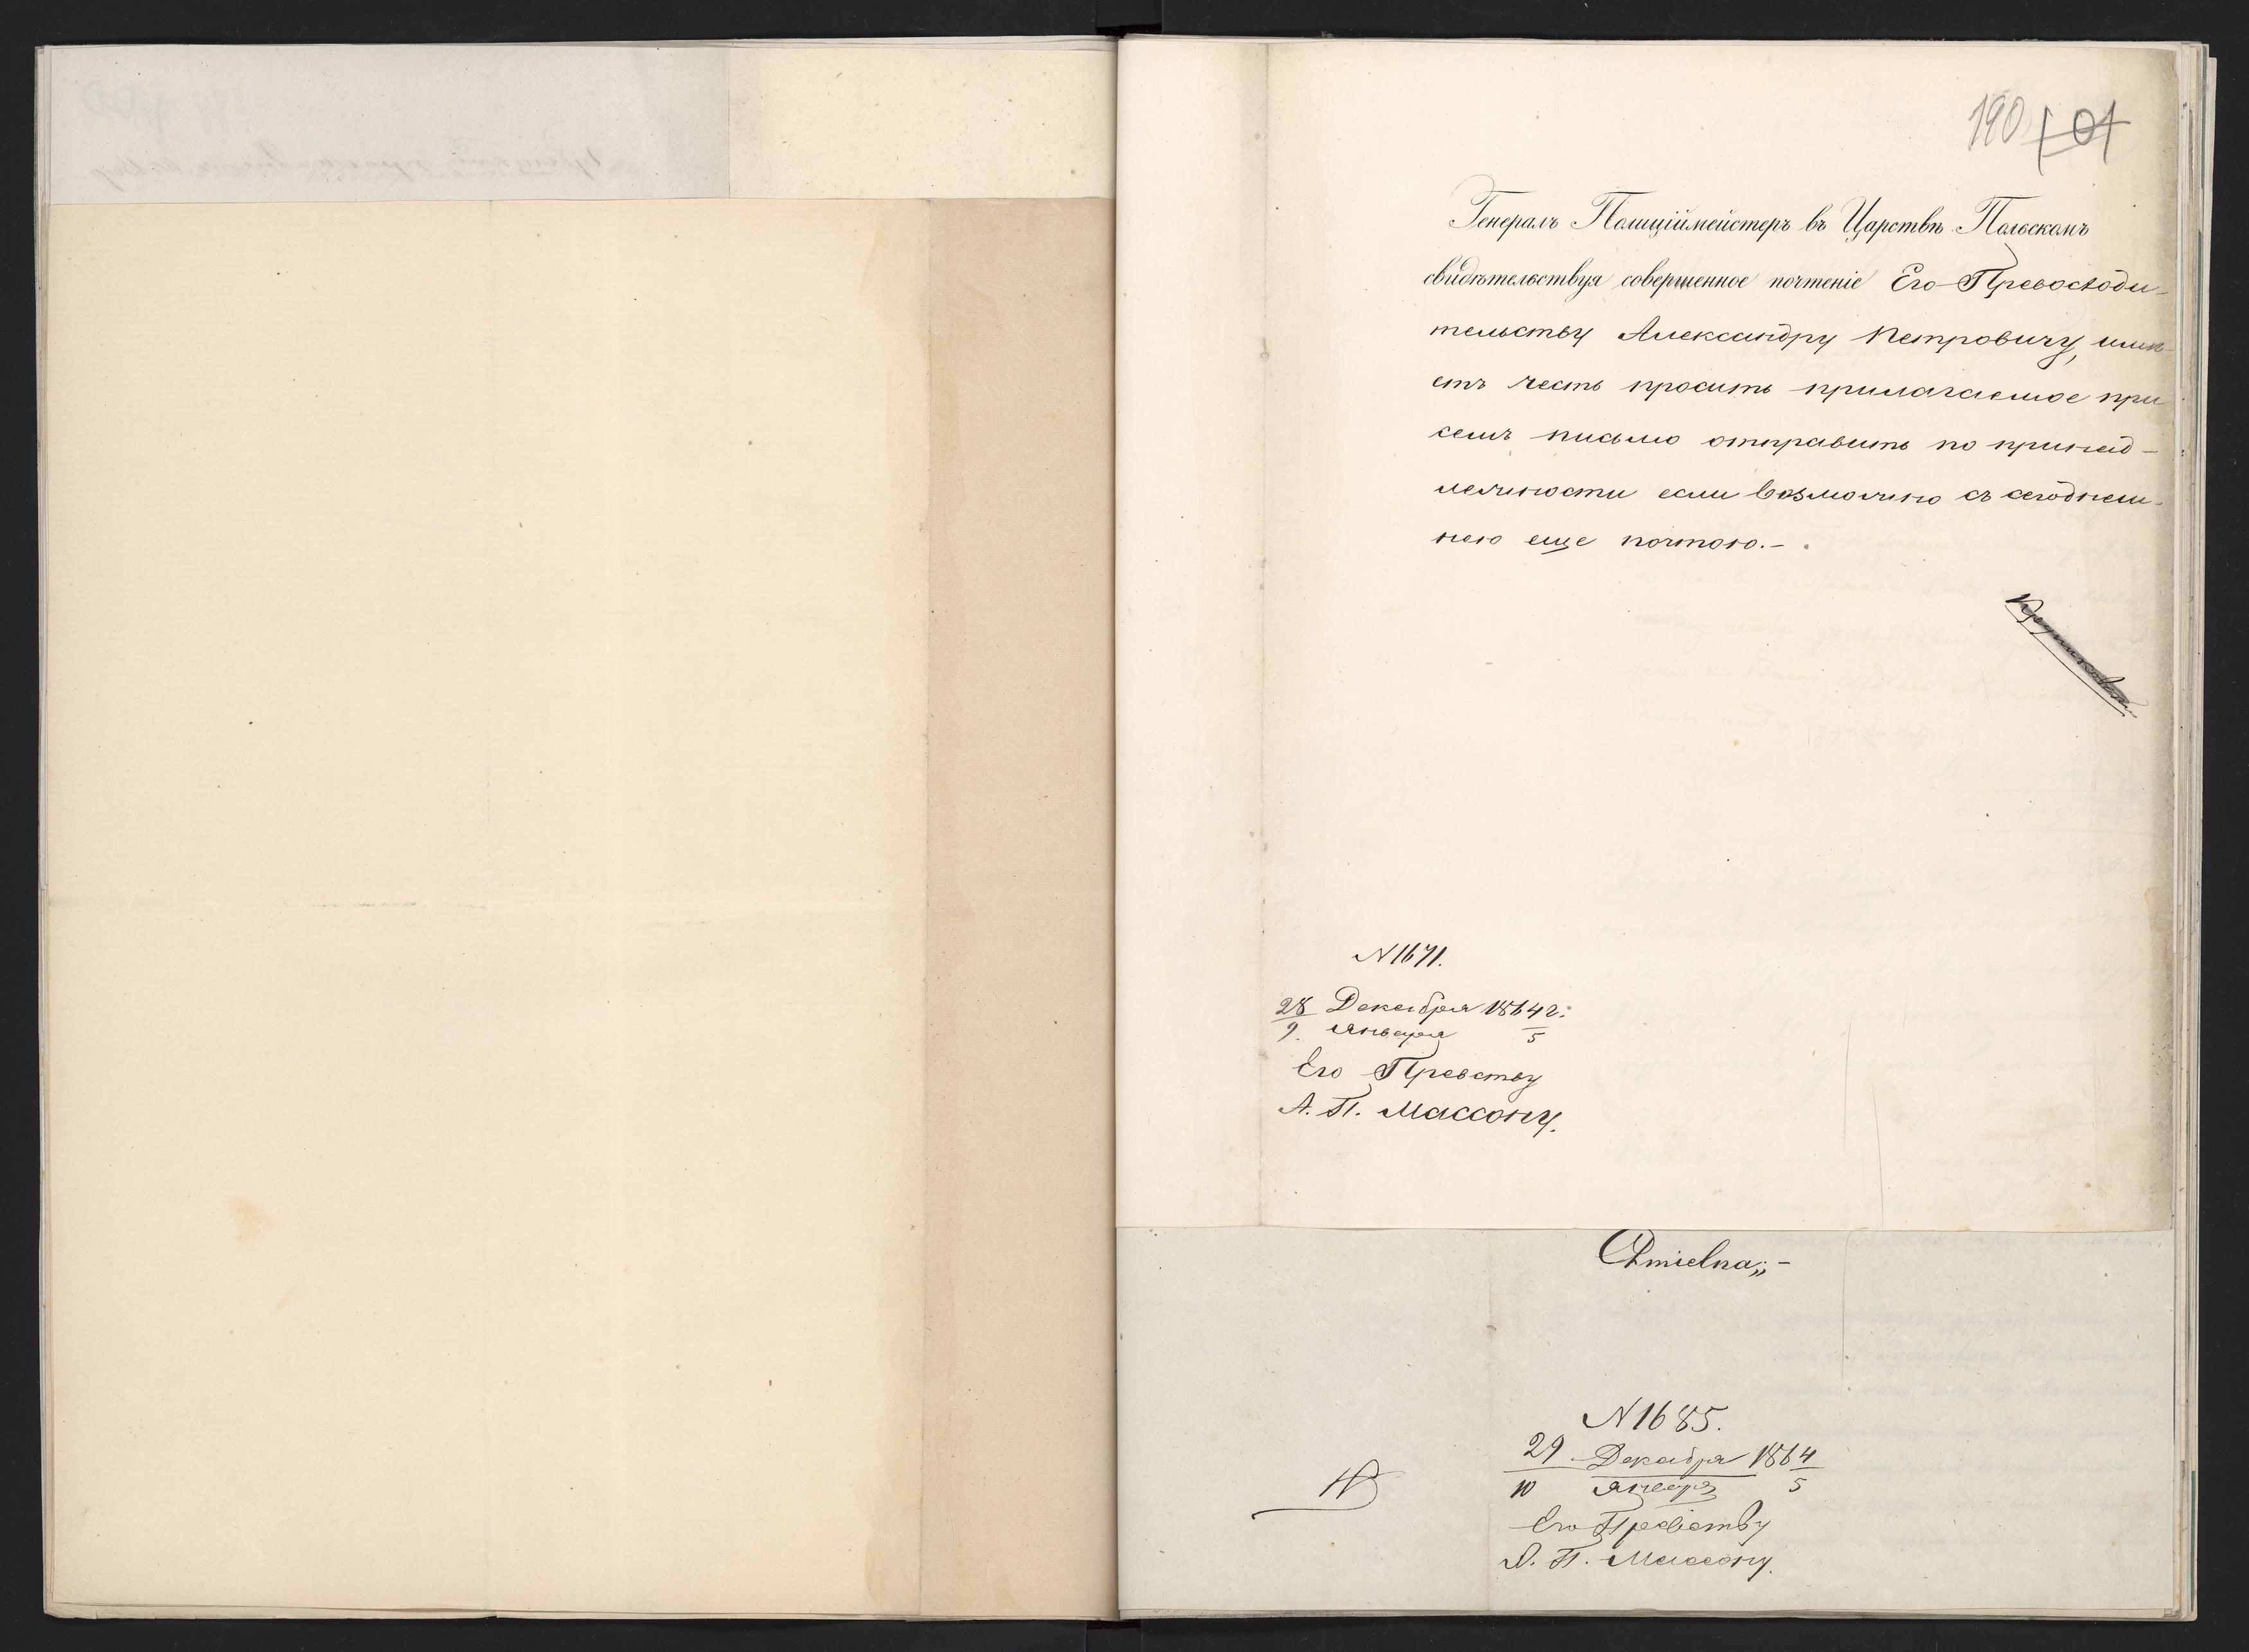 190 101
Генералъ Полиціймейстеръ въ Царствѣ Польскомъ
свидѣтельствуя совершенное почтеніе Его Превосходи-
тельству Александру Петровичу, имѣ-
етъ честь просить прилагаемое при
семъ письмо отправить по принад-
лежности если возможно съ сегоднеш-
нею еще почтою.-
N 1671.
28 Декабря 1864 г.
9. Января 5
Его Превству
А. П. Массону.
Chmielna
N 1685.
29 Декабря 1864
10 Января 5
Его Превству
А. П. Массону.